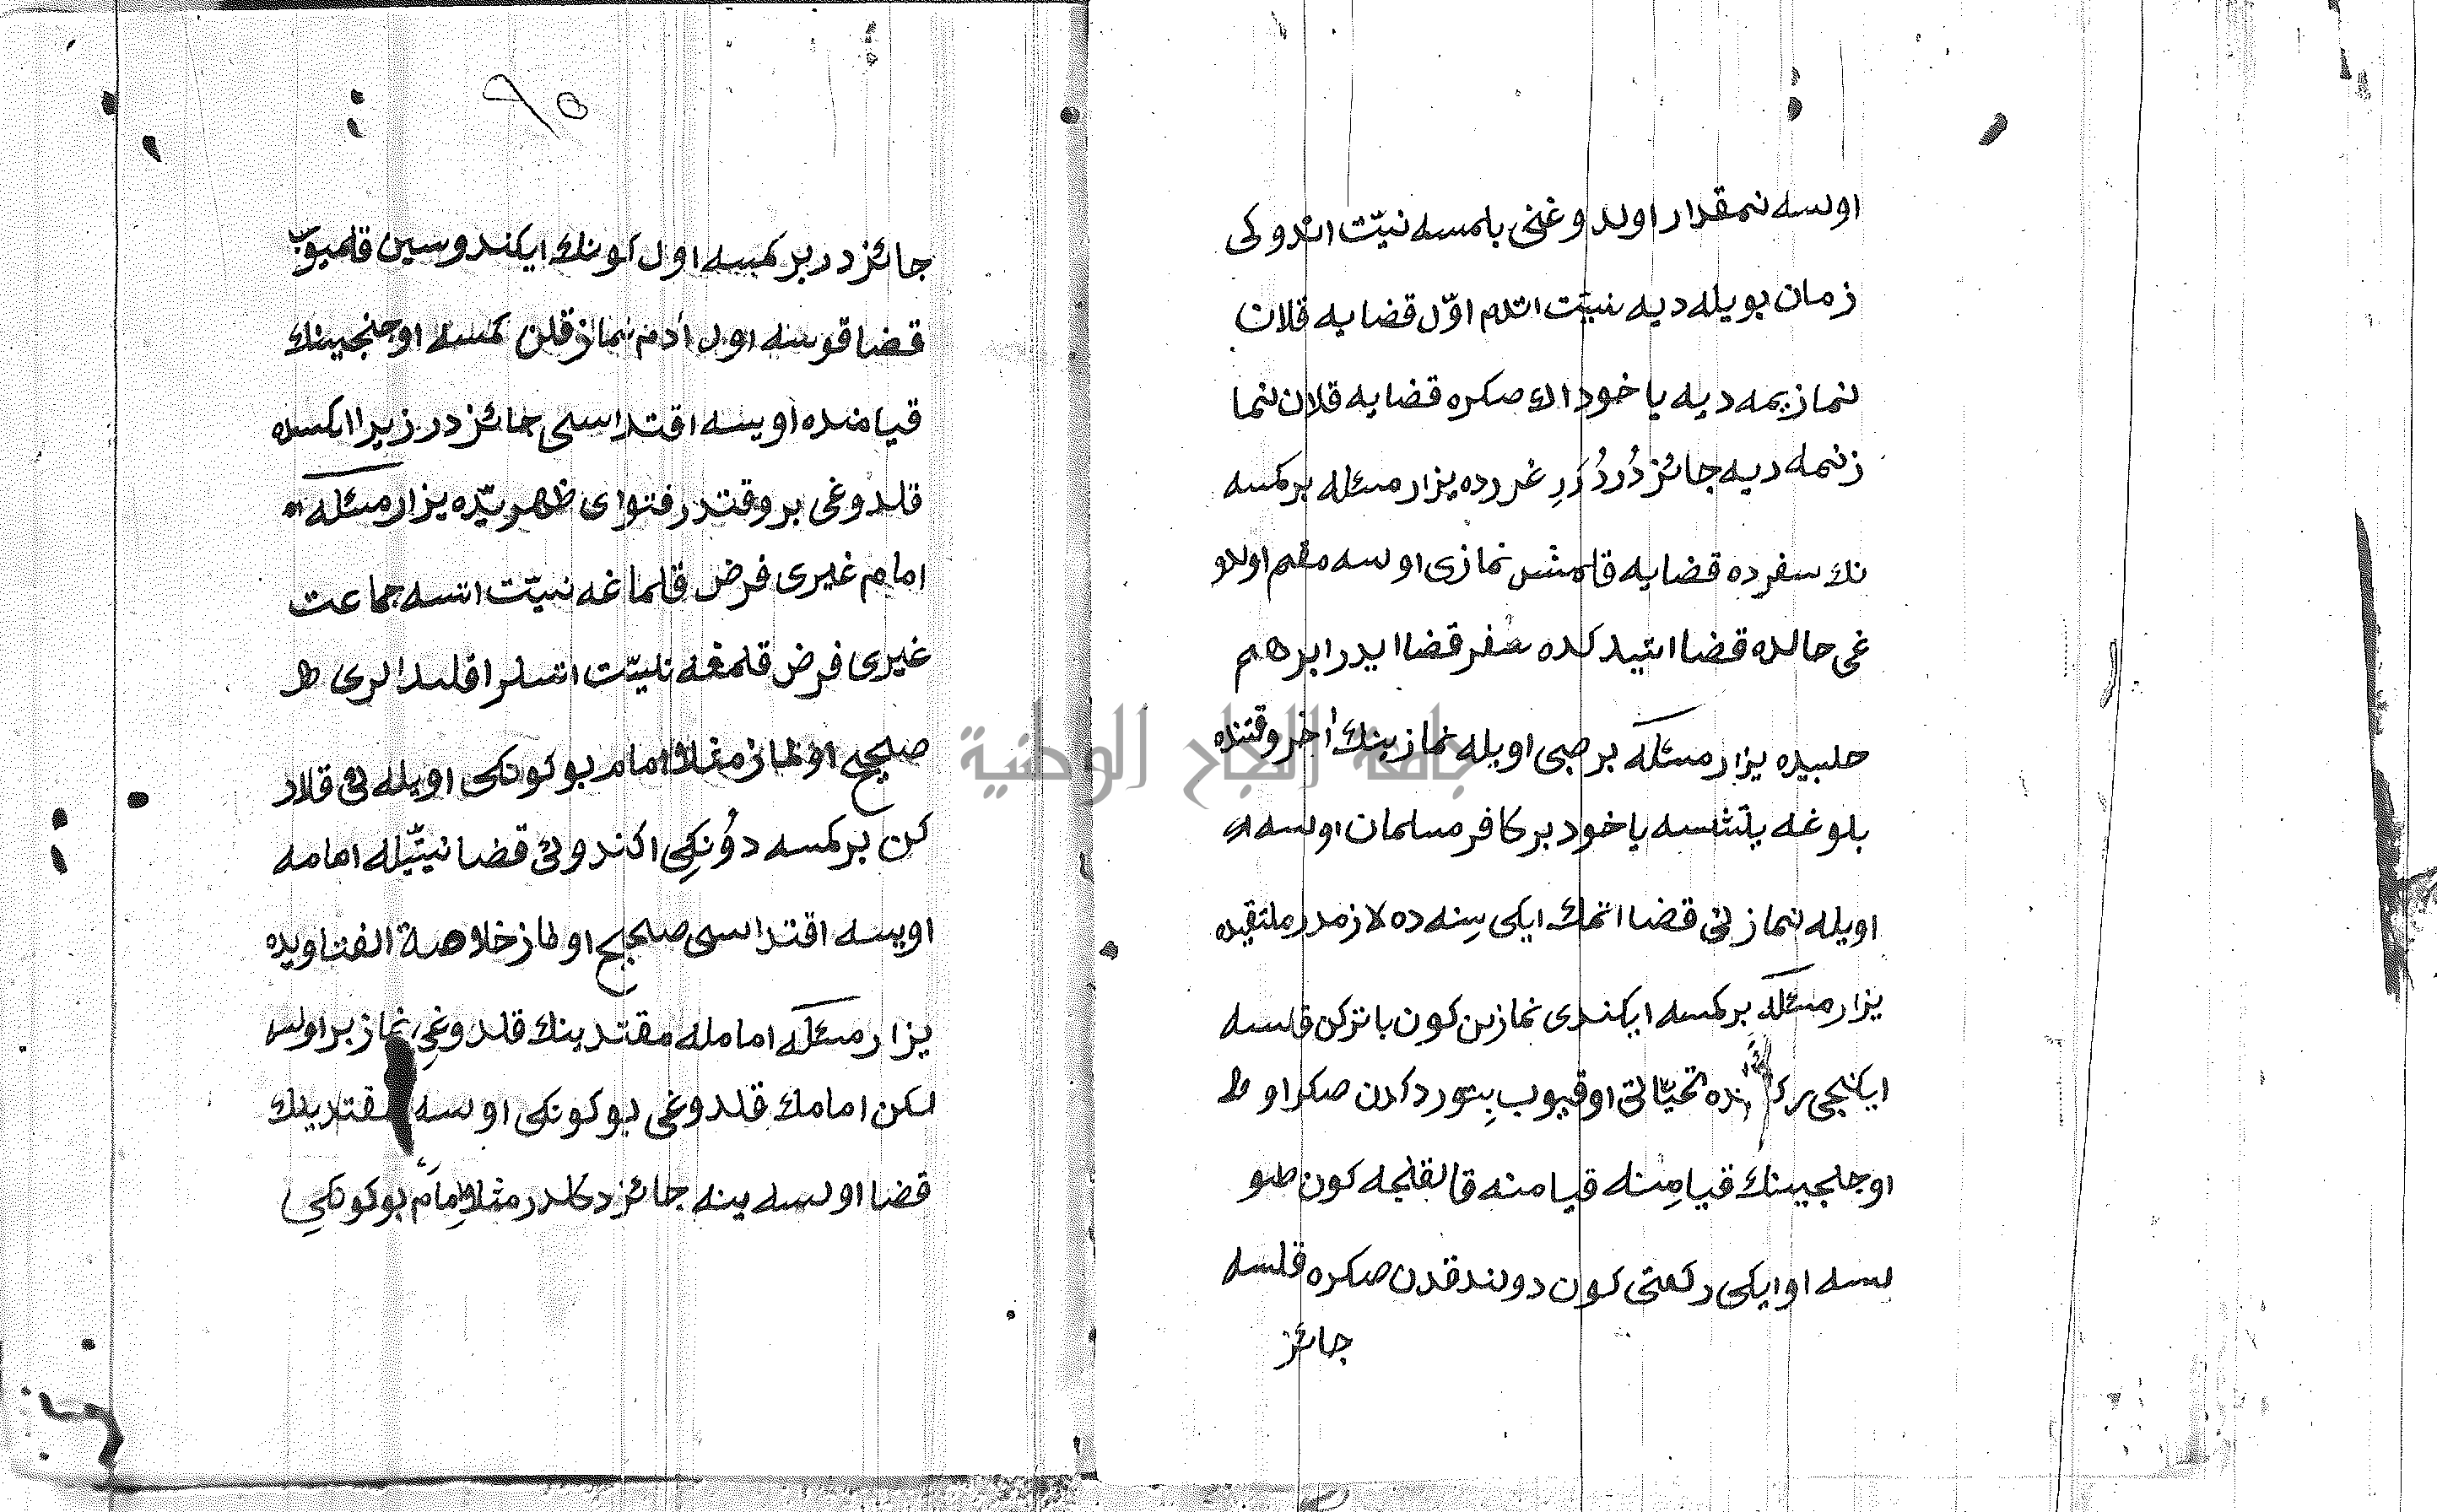 اولسه نمقدار اولدوغنی بلمسه نیّت اندوکی
زمان بویله دیه نیّت اتدم اوّل قضایه قلان
نمازیمه دیه یاخود اك صکره قضایه قلان نما
زنمه دیه جائزدُر دُرَرِ غررده یزار مسئله برکمسه
نك سفرده قضایه قلمش نمازی اولسه مقیم اولدو
غی حالده قضا اتیدکده سفر قضا ایدر ابرهم
حلبیده یزار مسئله بر صبی اویله نمازینك اخر وقتنده
بلوغه یتشسه یاخود بر کافر مسلمان اولسه
اویله نمازنی قضا اتمك ایکی سِنه ده لازمدر ملتقیده
یزار مسئله برکمسه ایکندی نمازین کون باترکن قلسه
ایکنجی تحیّاتی اوقیوب بِتوردکدن صکرا و
اوچنجیسنك قیامِنه قیامنه قالقنجه کون طو
لسه او ایکی رکعتی کون دولندقدن صکره قلسه
جائز
٩٥
جائزدر برکمسه اول کونك ایکندوسین قلمیوب
قضا قوسه اول ادم نماز قلن کمسه اوچنجینك
قیامنده اویسه اقتداسی جائزدر زیرا ایکسده
قلدوغی بر وقتدر فتوای ظهریّده یزار مسئله
امام غیری فرض قلماغه نیّت اتسه جماعت
غیری فرض قلمغه نیّت اتسلر اقتدالری
صحیح اولماز مثلا امام بو کونکی اویله نی قلار
کن برکمسه دوُنکِی اکندونی قضا نیّتیله امامه
اویسه اقتداسی صحیح اولماز خلاصة الفتاویده
یزار مسئله امامله مقتدینك قلدوغی نماز بر اولسه
لکن امامك قلدوغی بو کونکی اولسه مقتدینك
قضا اولسه ینه جائز دکلدر مثلا امام بو کونکی
جامعة النجاح الوطنية